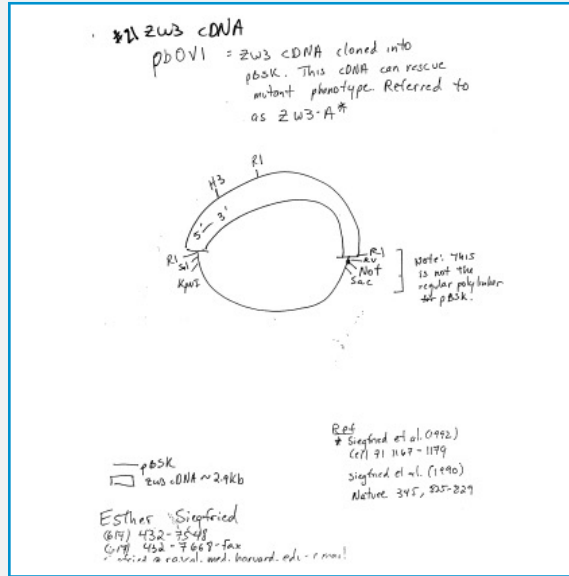 #21 ZW3 cDNA
pbOVI = ZW3 cDNA cloned into
pBSK. This cDNA can rescue
mutant phenotype. Referred to
as ZW3-A*
R1
H3
5' — 3'
R1
Sal
KpnI
R1
RV
Not
Sac
Note: This
is not the
regular polylinker
for pBSK.
Ref
* Siegfried et al. (1992)
Cell 71 1167-1179
Siegfried et al. (1990)
Nature 345, 825-829
pBSK
ZW3 cDNA ~2.9Kb
Esther Siegfried
(617) 432-7548
(617) 432-7668-fax
med.harvard.edu - email